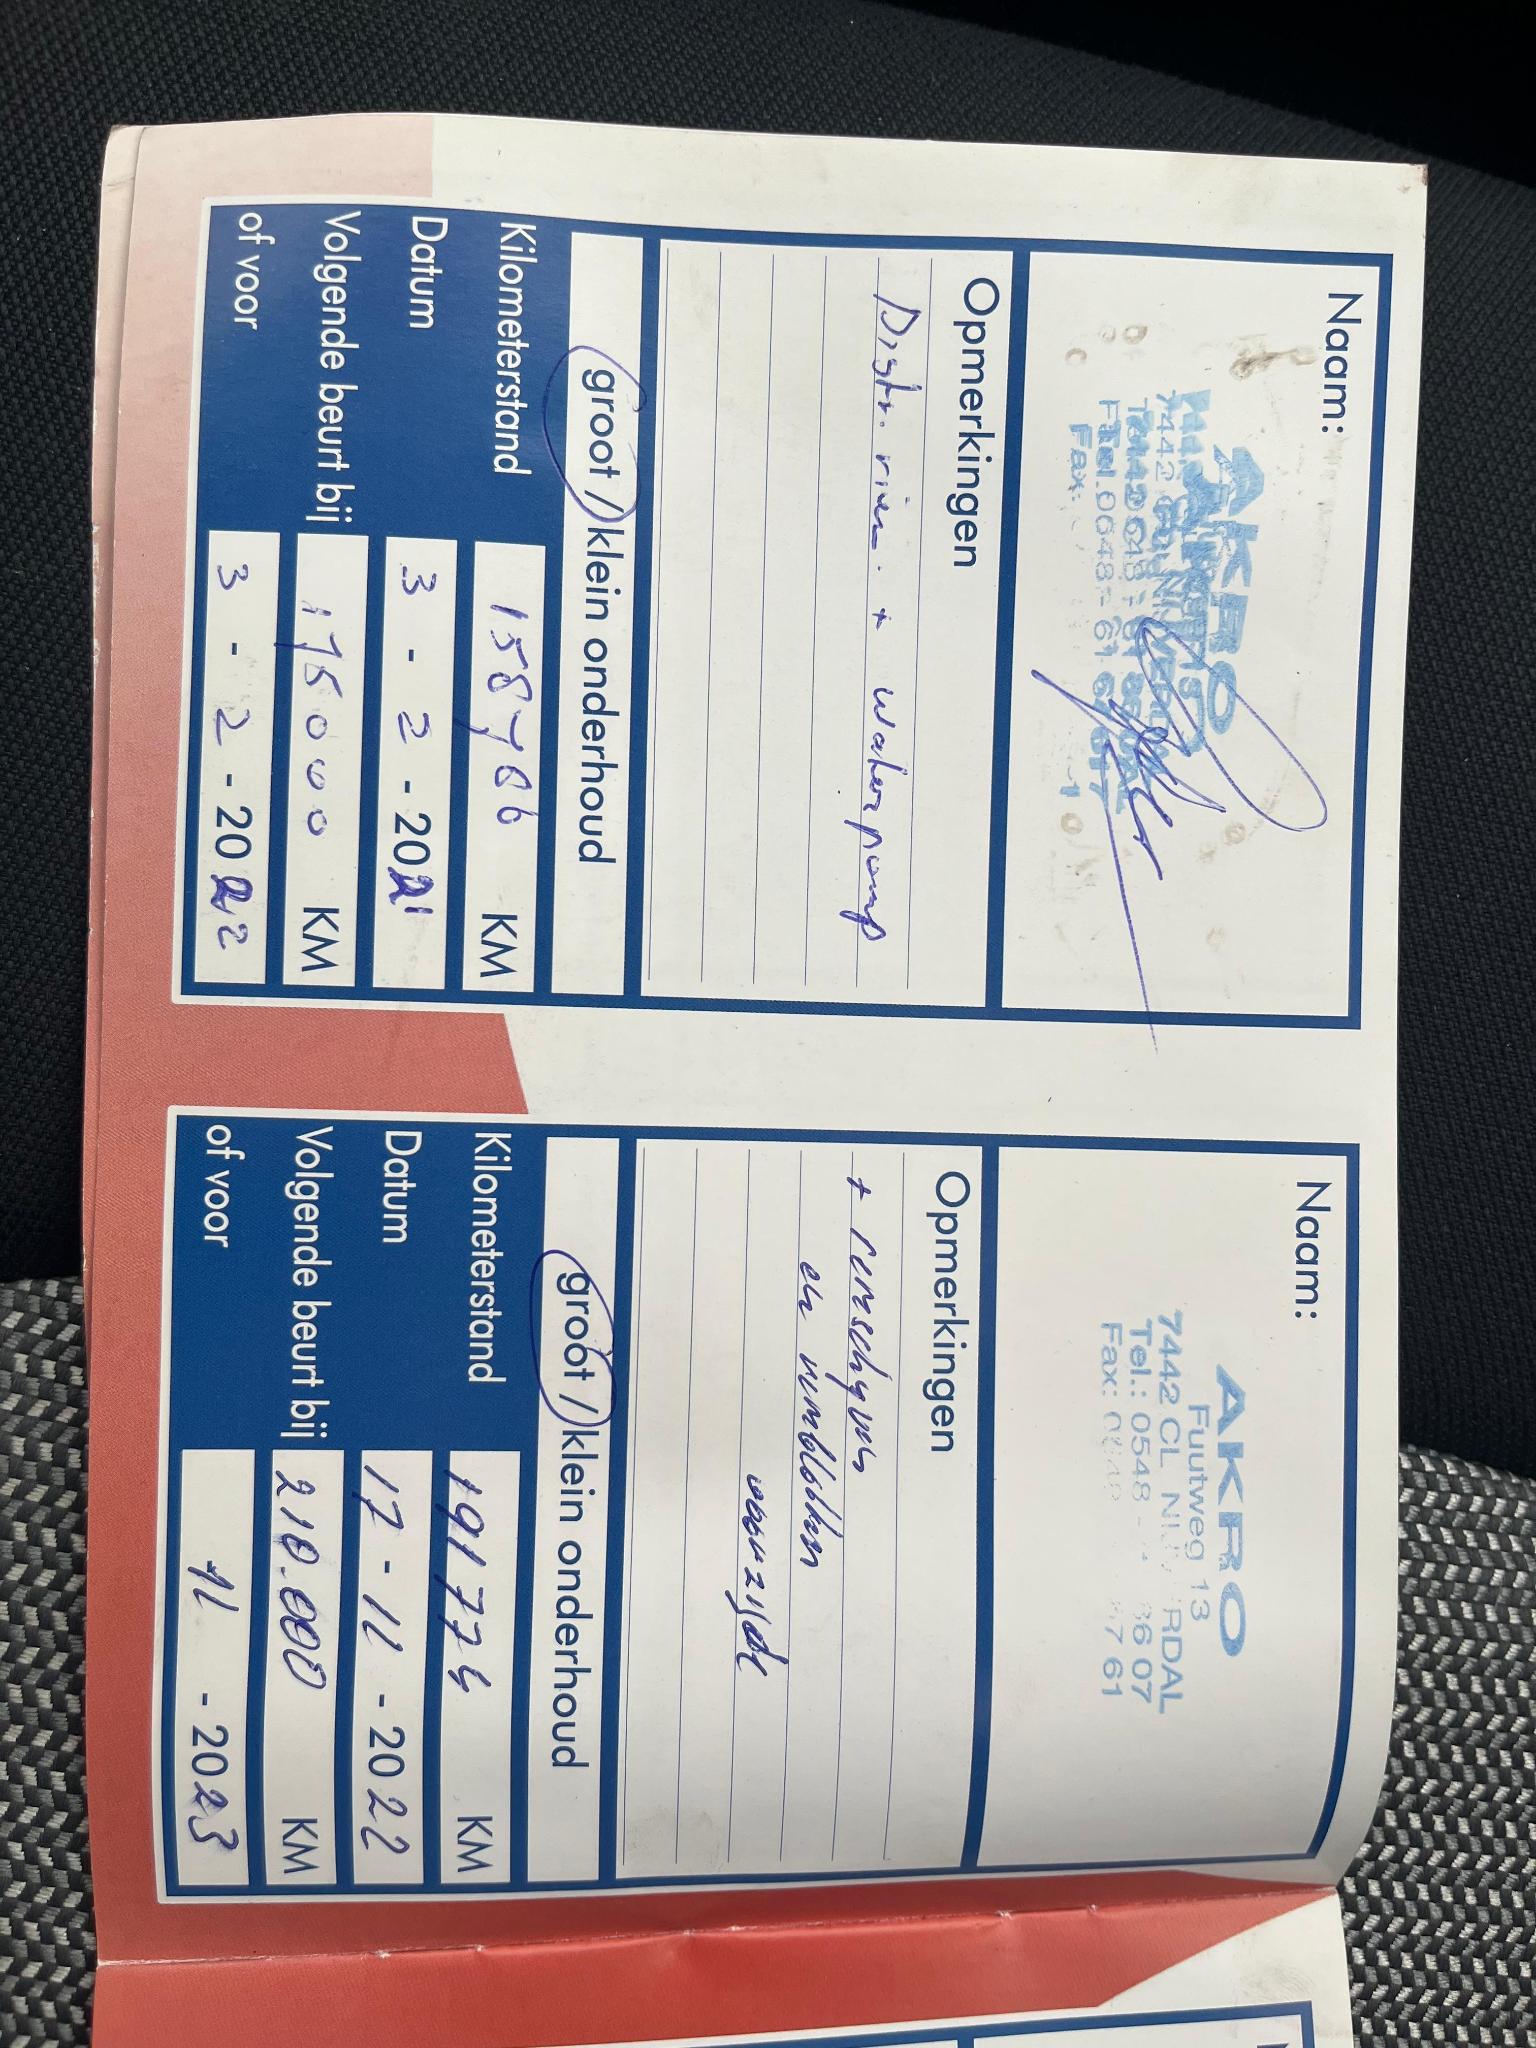 Naam:
AKRO
Opmerkingen
Distr. riem + Waterpomp
groot / klein onderhoud
Kilometerstand 158786 KM
Datum 3 - 2 - 2021
Volgende beurt bij 175000 KM
of voor 3 - 2 - 2022
Naam:
AKRO
Fuutweg 13
7442 CL RDAL
Tel.: 0548 - 36 07
Fax: 67 61
Opmerkingen
+ remschijven
en remblokken
voorzijde
groot / klein onderhoud
Kilometerstand 191774 KM
Datum 17 - 11 - 2022
Volgende beurt bij 210.000 KM
of voor 11 - 2023